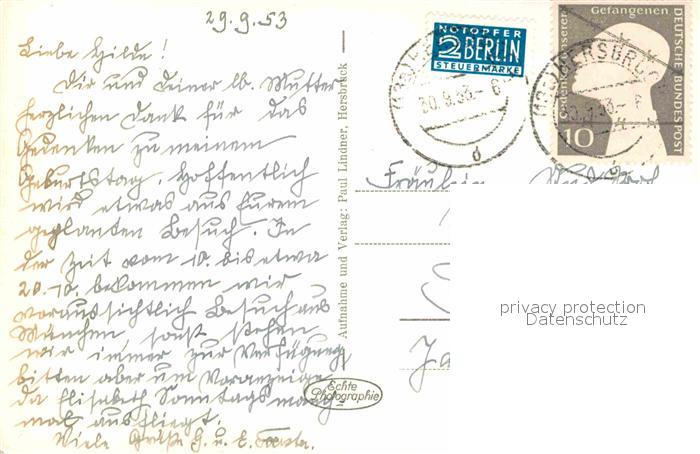 29.9.53
Liebe Hilde!
Dir und Deiner lb. Mutter
herzlichen Dank für das
Gedenken zu meinem
Geburtstag. Hoffentlich
wird etwas aus Eurem
geplanten Besuch. In
der Zeit vom 10. bis etwa
20.10. bekommen wir
voraussichtlich Besuch aus
München, sonst stehen
wir immer zur Verfügung,
bitten aber um Voranzeige
da Elisabeth Sonntags manch-
mal ausfliegt.
Viele Grüße G. u. E.
Aufnahme und Verlag: Paul Lindner, Hersbruck
Echte
Photographie
NOTOPFER
2 BERLIN
STEUERMARKE
Gedenket unserer Gefangenen
DEUTSCHE BUNDESPOST
10
HERSBRUCK
30.9.53
d
Fräulein
privacy protection
Datenschutz